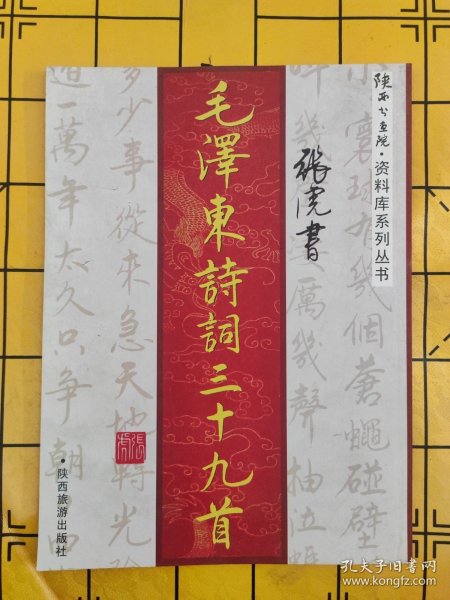 陕西书画院·资料库系列丛书
小寰球有几個蒼蠅碰壁
幾聲厲幾聲抽泣蠅
張虎書
毛澤東詩詞三十九首
多少事從來急天地轉光陰
迫一萬年太久只爭朝
張虎
·陕西旅游出版社
孔夫子旧书网
www.kongfz.com